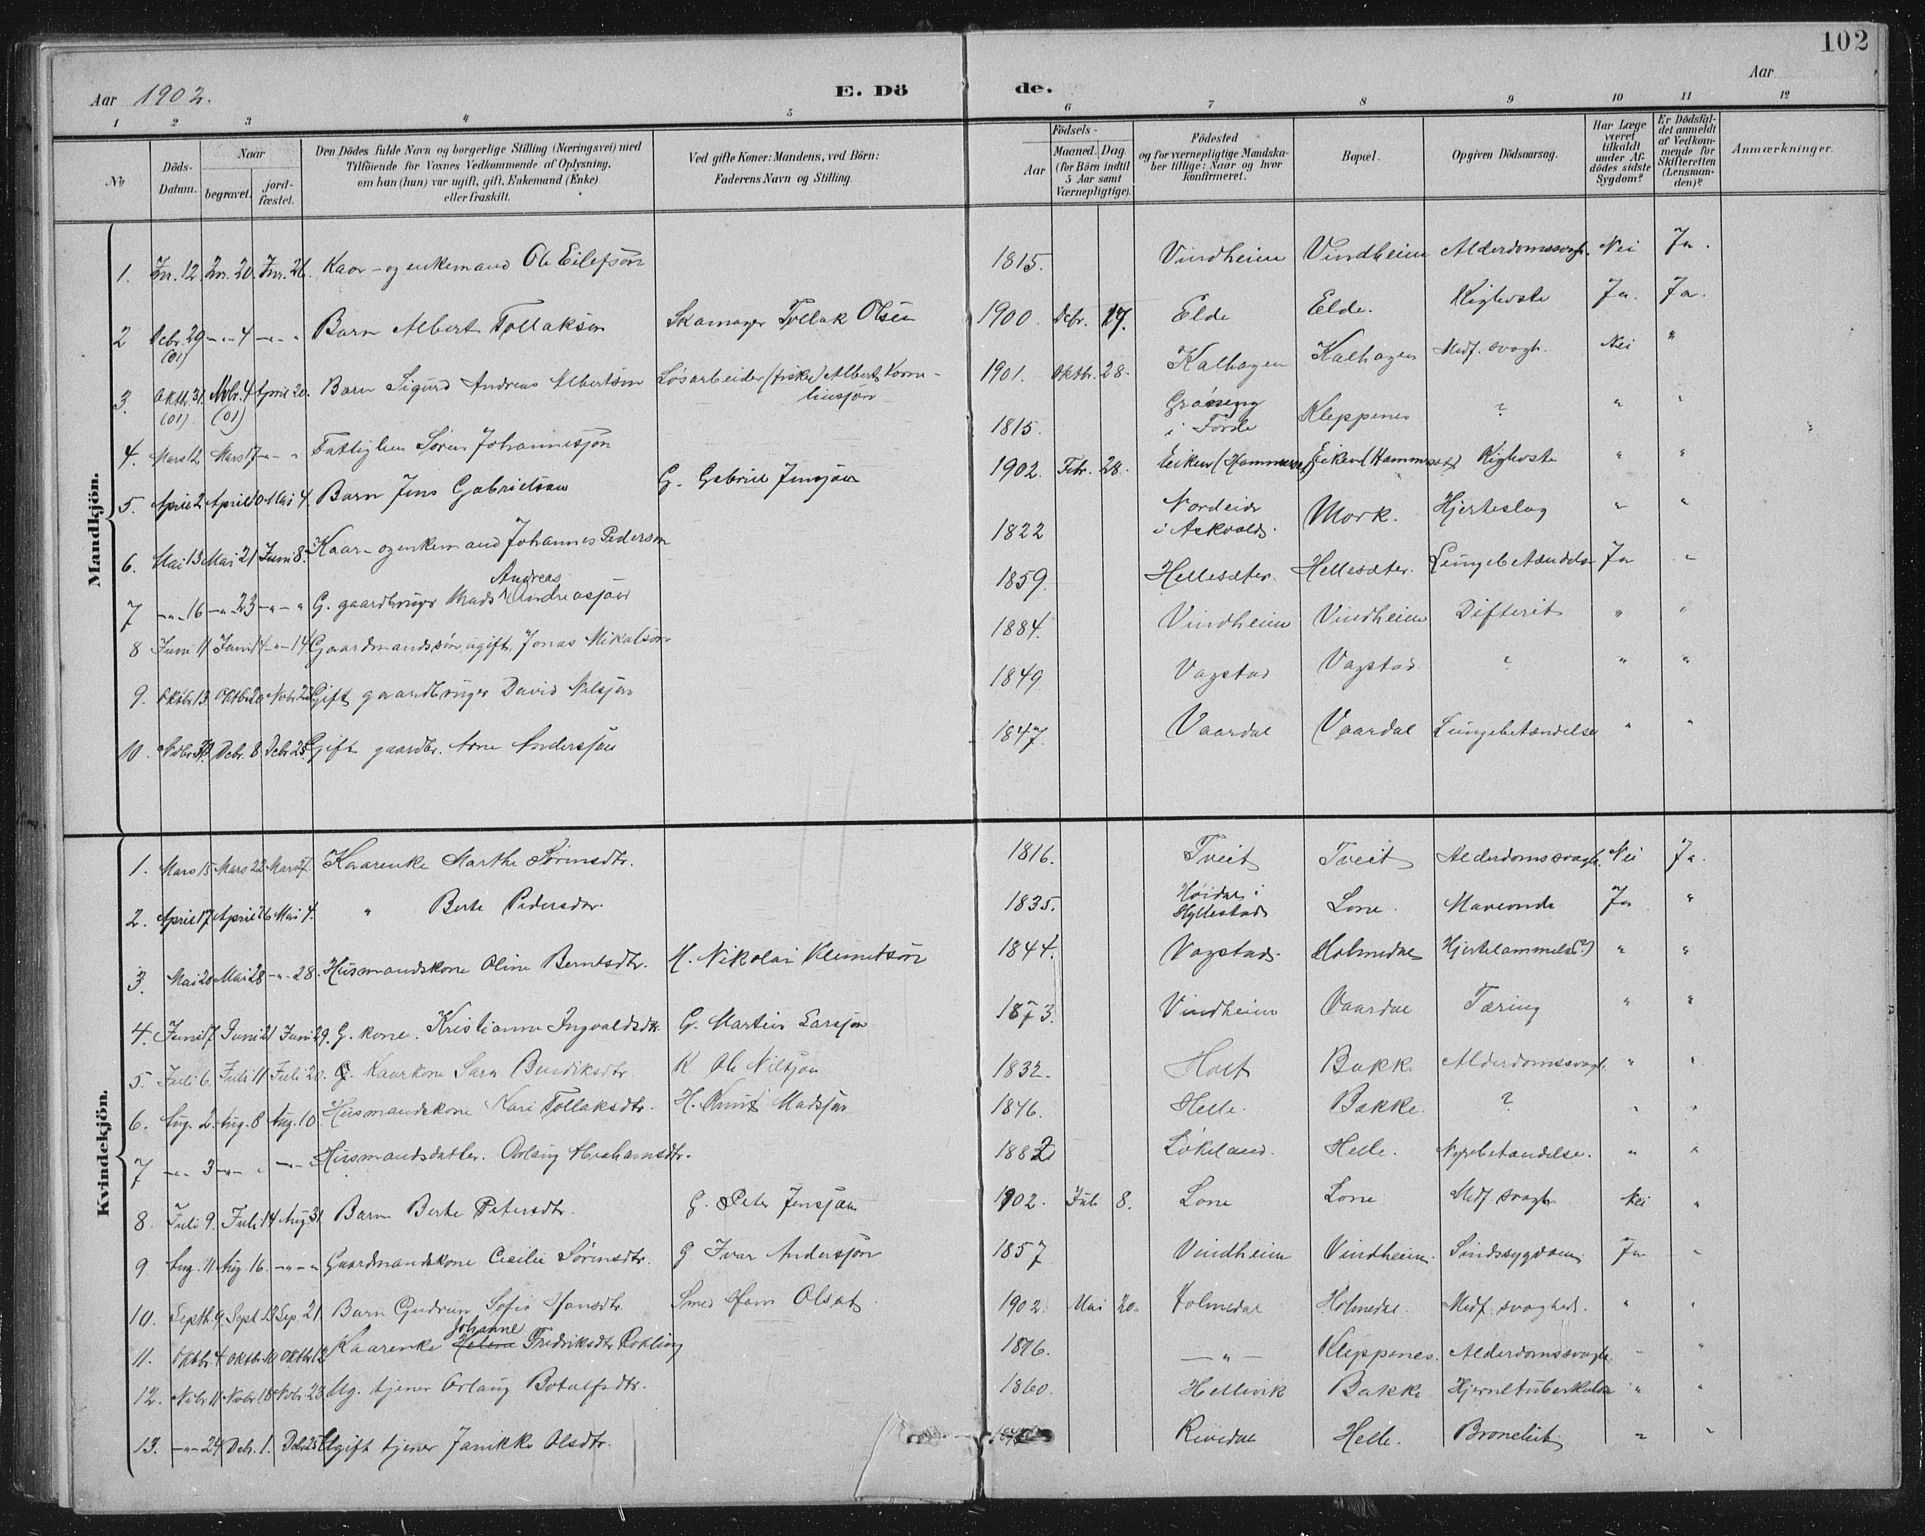 102
Aar 1902.
E. Dö de.
Aar
1 2 3 4 5 6 7 8 9 10 11 12
No
Döds-Datum.
Naar
begravet.
jord-fæstet.
Den Dödes fulde Navn og borgerlige Stilling (Næringsvei) med
Tilföiende for Voxnes Vedkommende af Oplysning,
om han (hun) var ugift, gift, Enkemand (Enke)
eller fraskilt.
Ved gifte Koner: Mandens, ved Börn:
Faderens Navn og Stilling.
Födsels-
Aar
Maaned. Dag.
(for Börn indtil
5 Aar samt
Værnepligtige).
Födested
og for værnepligtige Mandska-
ber tillige: Naar og hvor
konfirmeret.
Bopæl.
Opgiven Dödsaarsag.
Har Læge
været
tilkaldt
under Af-
dödes sidste
Sygdom?
Er Dödsfal-
det anmeldt
af Vedkom-
mende for
Skifteretten
(Lensman-
den)?
Anmærkninger.
Mandkjön.
1. Jnr. 12. Jnr. 20. Jnr. 26. Kaar- og enkemand Ole Eilefsön 1815. Vindheim Vindheim Alderdomssvagh. Nei Ja.
2 Debr. 29 (01) -"- 4 -"- " Barn Albert Tollaksen Skomager Tollak Olsen 1900. Debr. 17. Elde Elde. Kighoste Ja. Ja.
3. Oktbr. 31. (01) Nvbr. 4 (01) April 20. Barn Sigurd Andreas Albertsen Løsarbeider (fisker) Albert Korne-
linsjøn 1901. Oktbr. 28. Kalhagen Kalhagen Medf. svagh. Nei "
4. Mars 12 Mars 17 -"- " Fattiglem Søren Johannesjøn 1815. Grøneng
i Førde Kleppenes ? " "
5. April 2 April 10 Mai 4. Barn Jens Gabrielsen G. Gabriel Jensjøn 1902. Febr. 28. Eiken (Hammerset) Eiken (Hammerset) Kighoste " "
6. Mai 13 Mai 21 Juni 8. Kaar- og enkemand Johannes Pedersen 1822 Nordeide
i Askvold. Mork. Hjerteslag " "
7 -"- 16 -"- 23 -"- " G. gaardbruger Mads Andreas Andreasjøn 1859. Hellesæter. Hellesæter. Lungebetændelse Ja "
8 Juni 11 Juni 14 -"- 14. Gaardmandssøn ugift Jonas Mikalsøn 1884. Vindheim Vindheim Difterit " "
9. Oktbr. 13. Oktbr. 20 Nvbr. 23 Gift gaardbruger David Nilsjøn 1849. Vagstad Vagstad ? " "
10. Nvbr. 30. Debr. 8 Debr. 25 Gift gaardbr. Arne Andersjøn 1847. Vaardal Vaardal Lungebetændelse " "
Kvindekjön.
1. Mars 15 Mars 22 Mars 27. Kaarenke Marthe Sørensdtr. 1816. Tveit Tveit Alderdomssvagh. Nei Ja.
2. April 17 April 26 Mai 4. " Berte Pedersdtr. 1835. Høidal i
Hyllestad Lone. Maveonde Ja "
3. Mai 20 Mai 28 -"- 28. Husmandskone Oline Berntsdtr. H. Nikolai Klemetsøn 1844. Vagstad. Holmedal Hjertelammelse(?) " "
4. Juni 17 Juni 21 Juni 29. G. kone. Kristianne Ingvaldsdtr. G. Martin Larsjøn 1873. Vindheim Vaardal Tæring " "
5. Juli 6. Juli 11 Juli 20. G. Kaarkone Sara Bendiksdtr K Ole Nilsjøn 1832. Holt Bakke Alderdomssvagh. " "
6. Aug. 2. Aug. 8 Aug. 10. Husmandskone Kari Tollaksdtr. H. Knut Madsjøn 1846. Helle. Bakke. ? " "
7 -"- 3 -"- " -"- Husmandsdatter. Orlaug Abrahamsdtr. 1882 Løkeland. Helle. Nyrebetændelse. " "
8. Juli 9. Juli 14 Aug 31. Barn Berte Petersdtr. G. Peter Jensjøn 1902. Juli 8. Lone Lone Medf. svagh Nei "
9 Aug. 11 Aug. 16. -"- " Gaardmandskone Cecilie Sørensdtr. G Ivar Andersjøn 1857 Vindheim Vindheim. Sindssygdom Ja "
10. Septb. 9. Sept. 13. Sep. 21. Barn Gudrun Sofie Hansdtr. Smed Hans Olsen 1902. Mai 20. Holmedal Holmedal. Medf. svaghed. " "
11. Oktbr. 4. Oktbr. 10 Oktbr. 12 Kaarenke Johanne Helene Fredriksdtr 1816. -"- Kleppenes. Alderdomssvagh. " "
12. Nvbr. 11 Nvbr. 18 Nvbr. 23. Ug. tjener Orlaug Botolfsdtr. 1860. Hellevik Bakke Hjernetuberkulose " "
13. -"- 24. Debr. 1. Debr. 25 Ugift tjener Janikke Olsdtr. Rivedal Helle. Bronchit " "